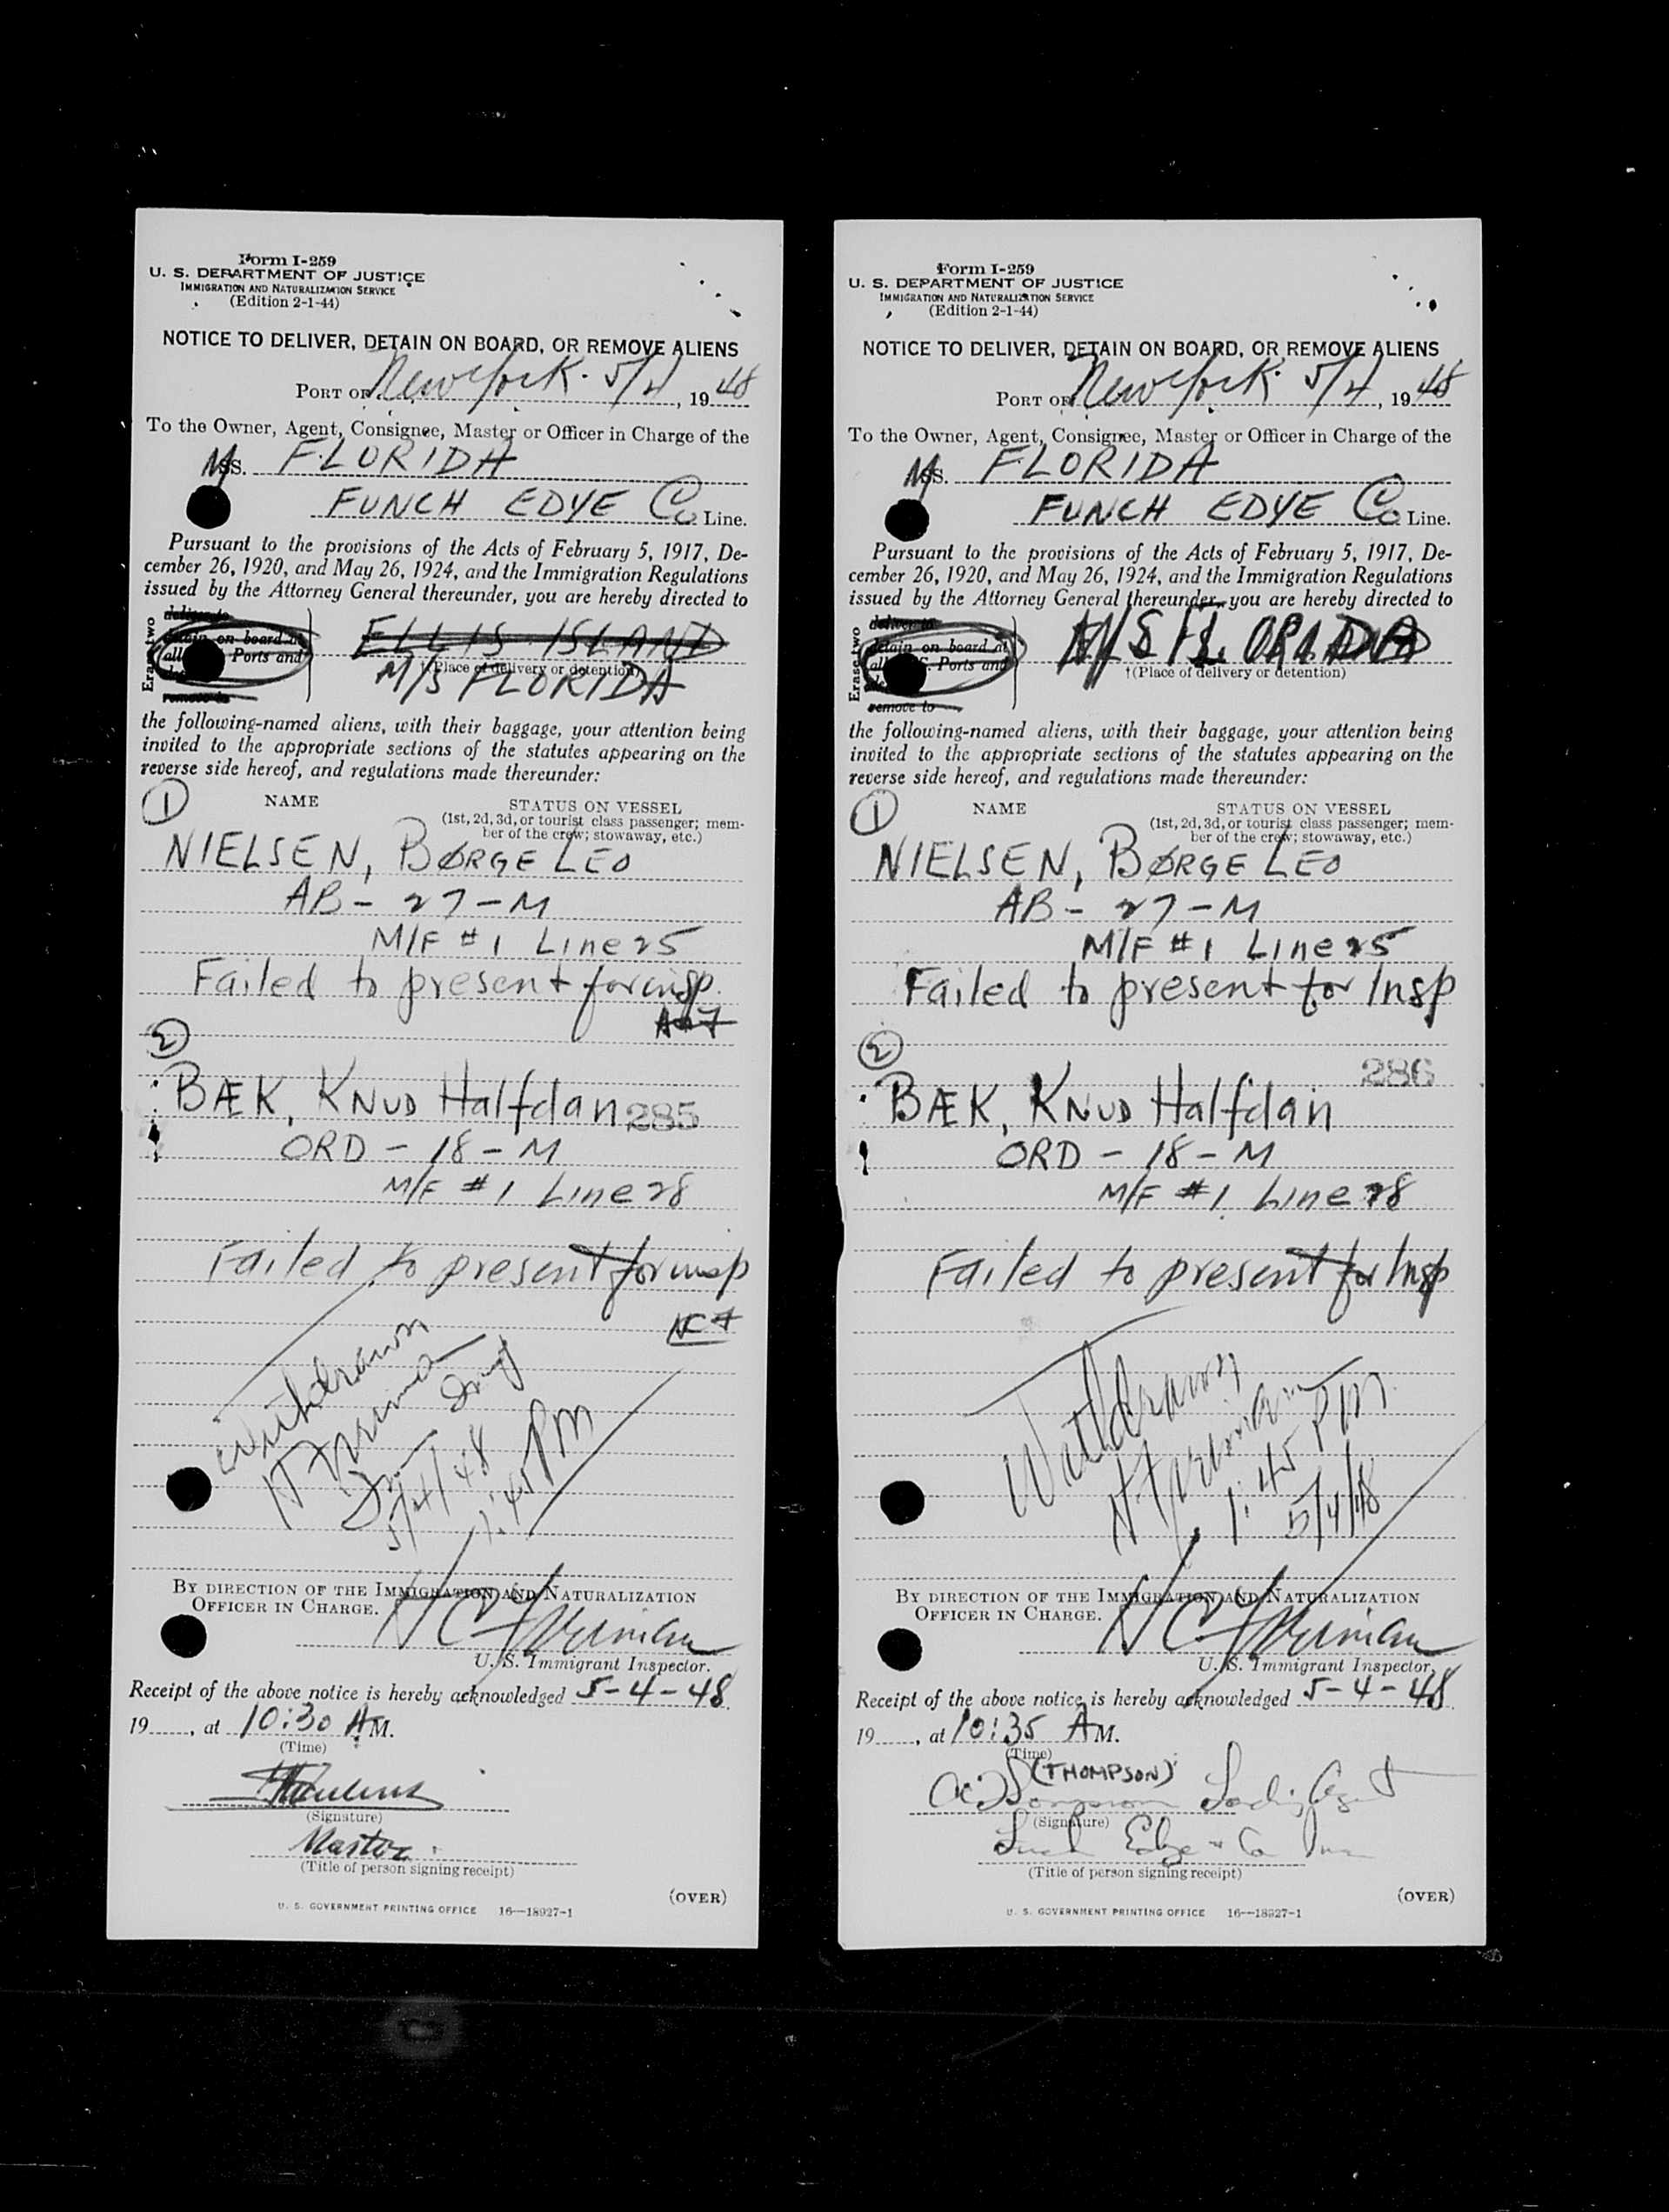 Form I-259
U. S. DEPARTMENT OF JUSTICE
IMMIGRATION AND NATURALIZATION SERVICE
(Edition 2-1-44)
NOTICE TO DELIVER, DETAIN ON BOARD, OR REMOVE ALIENS
PORT OF New York. 5/4, 1948
To the Owner, Agent, Consignee, Master or Officer in Charge of the
M/S. FLORIDA
FUNCH EDYE Co Line.
Pursuant to the provisions of the Acts of February 5, 1917, De-
cember 26, 1920, and May 26, 1924, and the Immigration Regulations
issued by the Attorney General thereunder, you are hereby directed to
Erase two
deliver to
detain on board at
all Ports and
remove to
ELLIS ISLAND
(Place of delivery or detention)
M/S FLORIDA
the following-named aliens, with their baggage, your attention being
invited to the appropriate sections of the statutes appearing on the
reverse side hereof, and regulations made thereunder:
1
NAME STATUS ON VESSEL
(1st, 2d, 3d, or tourist class passenger; mem-
ber of the crew; stowaway, etc.)
NIELSEN, BØRGE LEO
AB - 27 - M
M/F #1 Line 25
Failed to present for insp.
2
BÆK, KNUD Halfdan 285
ORD - 18 - M
M/F #1 Line 28
Failed to present for insp
Withdrawn
5/4/48
1:45 PM
BY DIRECTION OF THE IMMIGRATION AND NATURALIZATION
OFFICER IN CHARGE.
U. S. Immigrant Inspector.
Receipt of the above notice is hereby acknowledged 5-4-48
19......, at 10:30 AM.
(Time)
(Signature)
Master
(Title of person signing receipt)
(OVER)
U. S. GOVERNMENT PRINTING OFFICE 16—18927-1
Form I-259
U. S. DEPARTMENT OF JUSTICE
IMMIGRATION AND NATURALIZATION SERVICE
(Edition 2-1-44)
NOTICE TO DELIVER, DETAIN ON BOARD, OR REMOVE ALIENS
PORT OF New York. 5/4, 1948
To the Owner, Agent, Consignee, Master or Officer in Charge of the
M/S. FLORIDA
FUNCH EDYE Co Line.
Pursuant to the provisions of the Acts of February 5, 1917, De-
cember 26, 1920, and May 26, 1924, and the Immigration Regulations
issued by the Attorney General thereunder, you are hereby directed to
Erase two
deliver to
detain on board at
all S. Ports and
remove to
M/S FLORIDA
†(Place of delivery or detention)
the following-named aliens, with their baggage, your attention being
invited to the appropriate sections of the statutes appearing on the
reverse side hereof, and regulations made thereunder:
1
NAME STATUS ON VESSEL
(1st, 2d, 3d, or tourist class passenger; mem-
ber of the crew; stowaway, etc.)
NIELSEN, BØRGE LEO
AB - 27 - M
M/F #1 Line 25
Failed to present for Insp
2
286
BÆK, KNUD Halfdan
ORD - 18 - M
M/F #1 Line 28
Failed to present for Insp
Withdrawn
1:45 PM
5/4/48
BY DIRECTION OF THE IMMIGRATION AND NATURALIZATION
OFFICER IN CHARGE.
U. S. Immigrant Inspector.
Receipt of the above notice is hereby acknowledged 5-4-48
19......, at 10:35 AM.
(Time)
(THOMPSON)
(Signature)
(Title of person signing receipt)
(OVER)
U. S. GOVERNMENT PRINTING OFFICE 16—18927-1